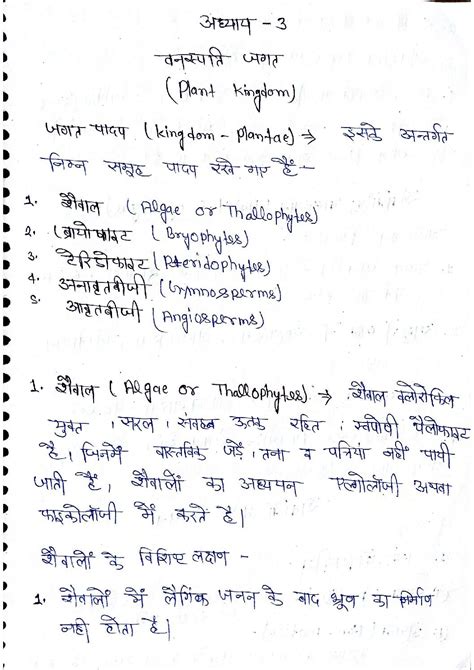 अध्याय - 3
वनस्पति जगत
(Plant Kingdom)
जगत पादप (Kingdom - Plantae) → इसके अन्तर्गत
निम्न समूह पादप रखे गए हैं -
1. शैवाल (Algae or Thallophytes)
2. ब्रायोफाइट (Bryophytes)
3. टैरिडोफाइट (Pteridophytes)
4. अनावृतबीजी (Gymnosperms)
5. आवृतबीजी (Angiosperms)
1. शैवाल (Algae or Thallophytes) → शैवाल क्लोरोफिल
युक्त, सरल, संवहन ऊतक रहित, स्वपोषी थैलोफाइट
है, जिनमें वास्तविक जड़ें, तना व पत्तियां नहीं पायी
जाती हैं, शैवालों का अध्ययन एल्गोलॉजी अथवा
फाइकोलॉजी में करते हैं।
शैवालों के विशिष्ट लक्षण -
1. शैवालों में लैंगिक जनन के बाद भ्रूण का निर्माण
नहीं होता है।